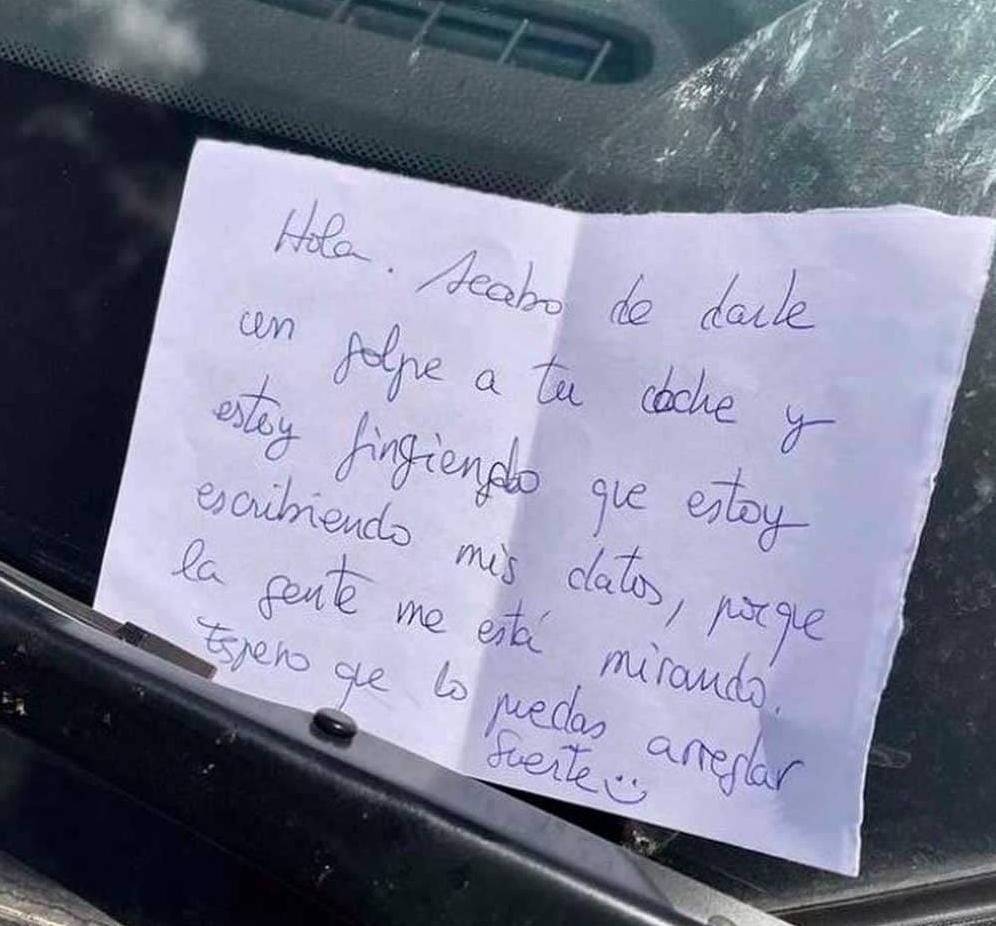 Hola. Acabo de darle
un golpe a tu coche y
estoy fingiendo que estoy
escribiendo mis datos, porque
la gente me está mirando.
Espero que lo puedas arreglar
Suerte :)